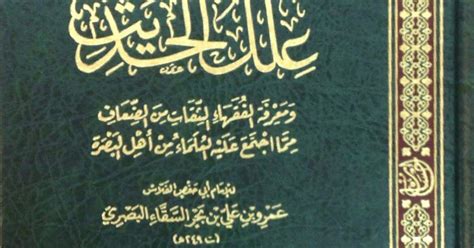 علل الحديث
ومعرفة الفقهاء الثقات من الضعاف
مما اجتمع عليه العلماء من أهل البصرة
للإمام أبي حفص الفلاس
عمرو بن علي بن بحر السقاء البصري
(ت ٢٤٩ هـ)